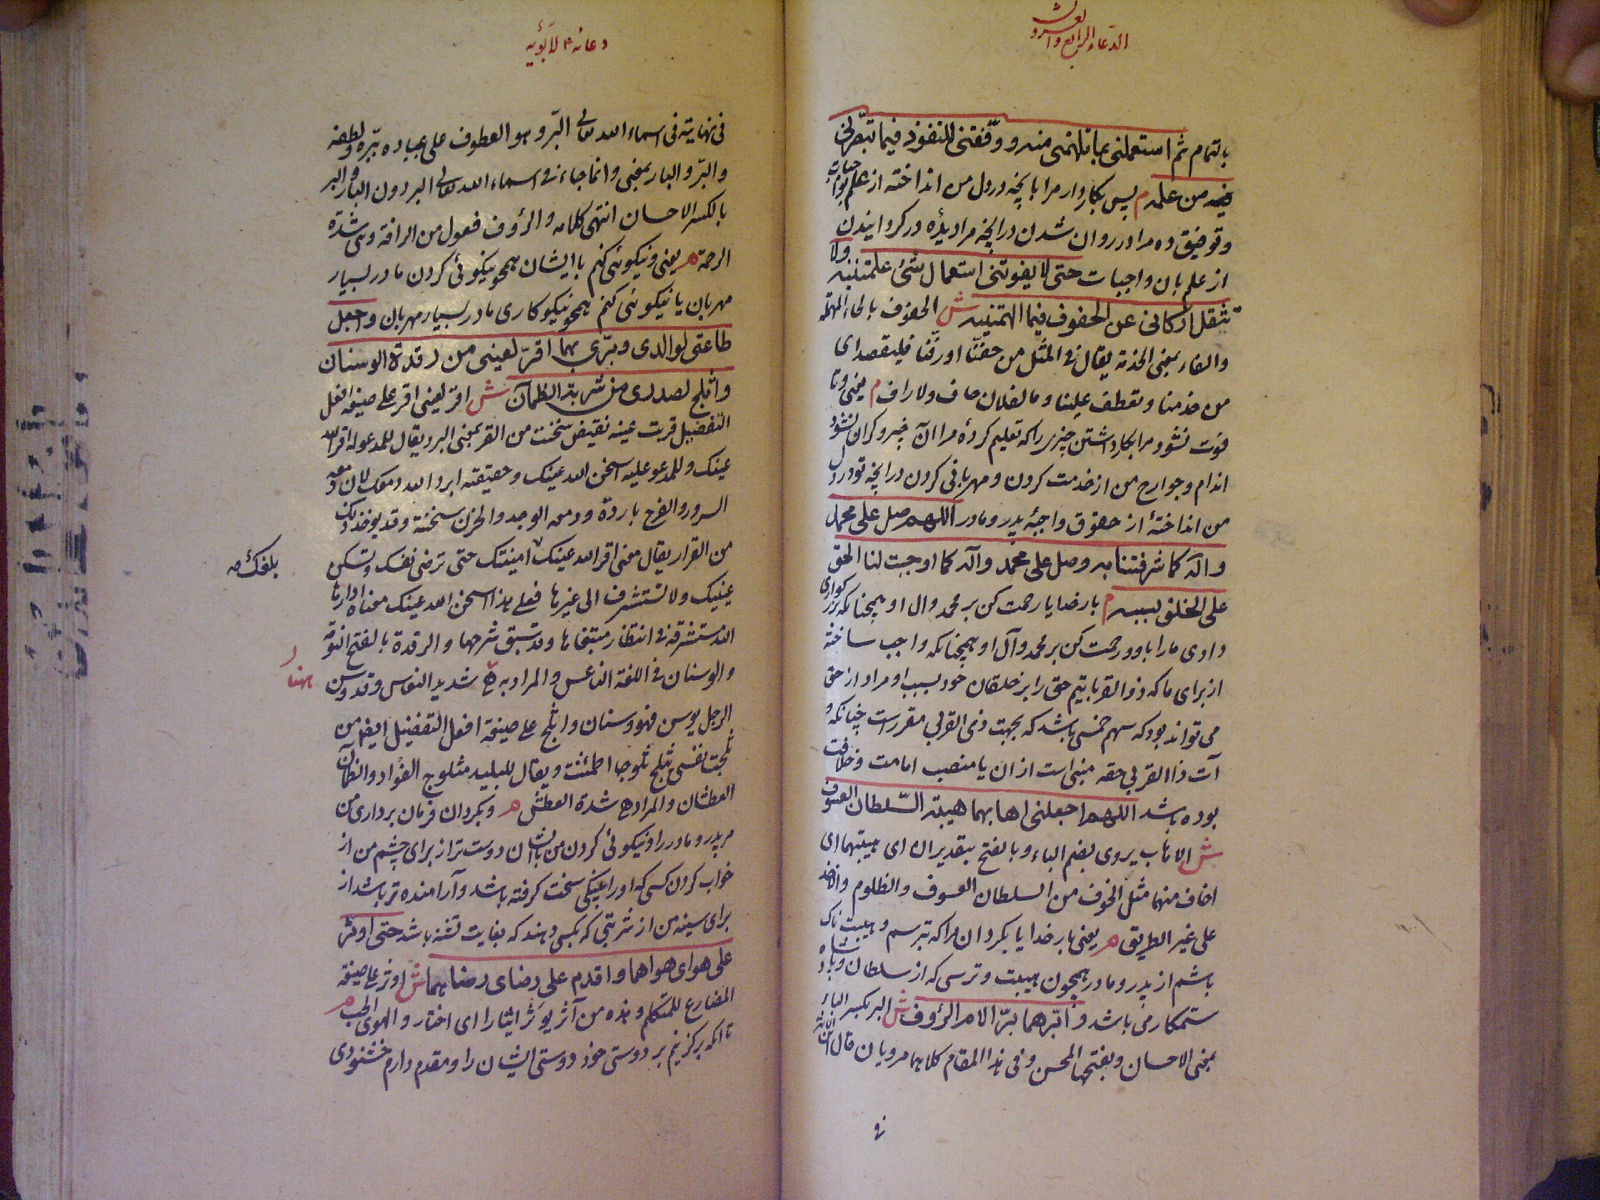 الدعاء الرابع والعشرون
بالتمام ثم استعملنی بما تلهمنی منه و وفّقنی للنفوذ فیما تبصّرنی
فیه من علمه م پس بکار دار مرا بانچه در دل من انداخته از علم
و توفیق ده مرا در روان شدن در انچه مرا دیده ور گردانیدن
از علم بان واجبات حتی لا یفوتنی استعمال شئ علمتنیه ولا
تثقل ارکانی عن الحفوف فیما الهمتنیه ش الحفوف بالحاء المهملة
والفاء بمعنی الخدمة یقال فی المثل من حفّنا او رفّنا فلیقتصد ای
من خدمنا و تعطف علینا و ما لفلان حاف ولا راف م یعنی و تا
فوت نشود مرا بکار داشتن چیزی را که تعلیم کرده مرا آن چیز و گران نشود
اندام و جوارح من از خدمت کردن و مهربانی کردن در انچه تو در دل
من انداختهٔ از حقوق واجبهٔ پدر و مادر اللهم صل علی محمد
و آله کما شرفتنا به وصل علی محمد و آله کما اوجبت لنا الحق
علی الخلق بسببه م بار خدایا رحمت کن بر محمد و ال او همچنانکه بزرگواری
دادی ما را باو و رحمت کن بر محمد و آل او همچنانکه واجب ساختهٔ
از برای ما که ذو القربائیم حق را بر خلقان خود بسبب او مراد از حق
می تواند بود که سهم خمس باشد که بجهت ذی القربی مقرر است چنانکه و
آت ذا القربی حقه مبنی است از ان یا منصب امامت و خلافت
بوده باشد اللهم اجعلنی اهابهما هیبة السّلطان العسوف
ش الاهاب یروی بضم الباء و بالفتح بتقدیر ان ای هیبتهما ای
اخاف منهما مثل الخوف من السلطان العسوف و الظلوم والاخذ
علی غیر الطریق م یعنی بار خدایا بگردان مرا که بترسم و هیبت ناک
باشم از پدر و مادر همچون هیبت و ترسی که از سلطان و پادشاه
ستمکار می باشد و أبرّهما برّ الام الرؤف ش البر بکسر الباء
بمعنی الاحسان و بفتحها المحسن و فی هذا المقام کلاهما مرویان قال ابن الاثیر
فی
دعائه ع لابویه
فی نهایته فی اسماء الله تعالی البرّ و هو العطوف علی عباده ببّره و لطفه
والبرّ و البار بمعنی و انما جاء فی اسماء الله تعالی البر دون البار والبر
بالکسر الاحسان انتهی کلامه و الرؤف فعول من الرافة و هی شدة
الرحمة م یعنی و نیکوئی کنم با ایشان همچو نیکوئی کردن مادر بسیار
مهربان یا نیکوئی کنم همچو نیکو کاری مادر بسیار مهربان واجعل
طاعتی لوالدی و برّی بهما اقرّ لعینی من رقدة الوسنان
واثلج لصدری من شربة الظمآن ش اقر لعینی اقر علی صیغة افعل
التفضیل قرت عینه نقیض سخنت من القر بمعنی البرد یقال للمدعو له اقر الله
عینک و للمدعو علیه اسخن الله عینک و حقیقته ابرد الله دمعک لان دمعة
السرور و الفرح باردة و دمعة الوجد و الحزن سخنة و قد یؤخذ ذلک
من القرار یقال معنی اقر الله عینک امنیتک حتی ترضی نفسک و تسکن
بلغک صه
عینیک ولا تستشرف الی غیرها فعلی هذا اسخن الله عینک معناه ادارها
الله مستشرفة فی انتظار مبتغاها و قد سبق شرحها و الرقدة بالفتح النومة
والوسنان فی اللغة الناعس والمراد به ههنا شدید النعاس و قد وسن
ههنا
الرجل یوسن فهو وسنان و اثلج علی صیغة افعل التفضیل ایضا من
ثلجت نفسی تثلج ثلوجا اطمئنت و یقال للبلید مثلوج الفؤاد و الظمآن
العطشان و المراد شدة العطش م و بگردان فرمان برداری من
مر پدر و مادر را و نیکوئی کردن من باایشان دوست تر از برای چشم من از
خواب کردن کسی که او را پینکی سخت گرفته باشد و آرامنده تر باشد از
برای سینه من از شربتی که بکسی دهند که بغایت تشنه باشد حتی اوثر
علی هوای هواهما و اقدم علی رضای رضاهما ش اوثر علی صیغة
المضارع للمتکلم وهذه من آثر یؤثر ایثارا ای اختار و الهوی الحب م
تا انکه برگزینم بر دوستی خود دوستی ایشان را و مقدم دارم خشنودی